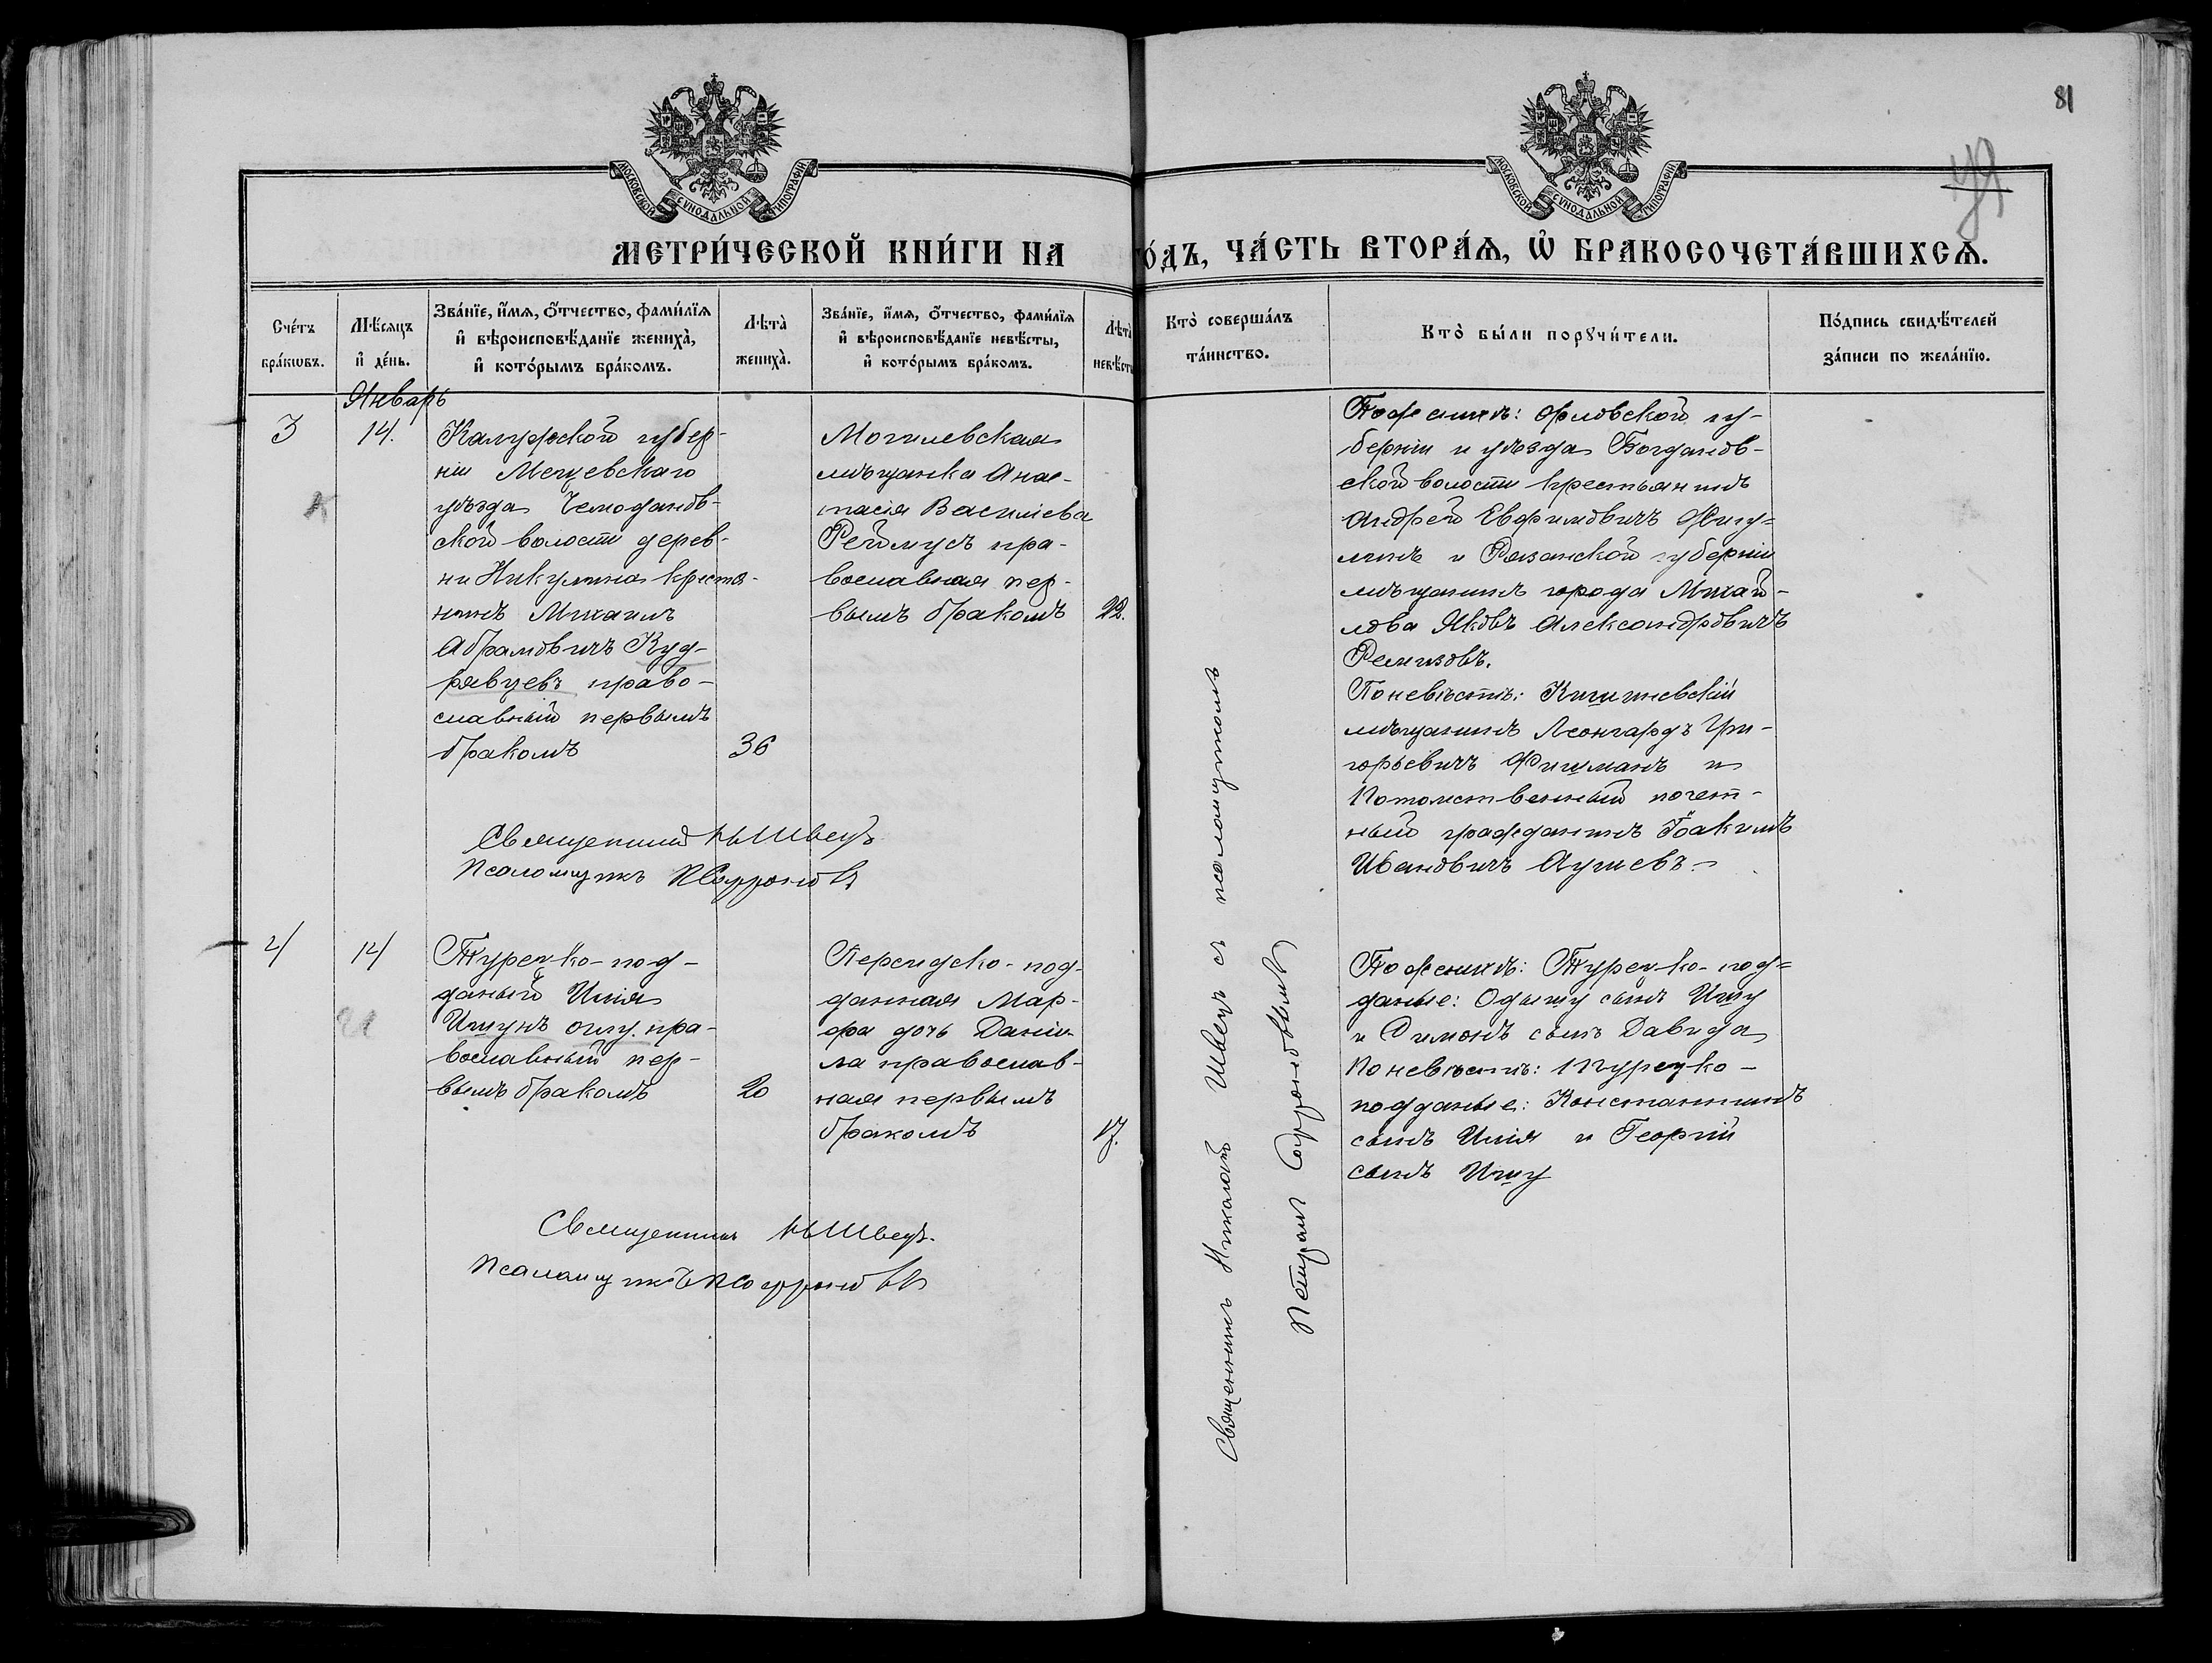 81
МОСКОВСКОЙ СѴНОДАЛЬНОЙ ТИПОГРАФІИ
МОСКОВСКОЙ СѴНОДАЛЬНОЙ ТИПОГРАФІИ
МЕТРИ́ЧЕСКОЙ КНИ́ГИ НА ГО́ДЪ, ЧА́СТЬ ВТОРА́Ѧ, Ѽ БРАКОСОЧЕТА́ВШИХСѦ.
Сче́тъ
бра́кѡвъ.
Мѣ́сяцъ
и҆ де́нь.
Зва́нїе, и҆́мя, ѻ҆́тчество, фами́лїя
и҆ вѣроисповѣ́данїе жениха̀,
и҆ кото́рымъ бра́комъ.
Лѣта̀
жениха̀.
Зва́нїе, и҆́мя, ѻ҆́тчество, фами́лїя
и҆ вѣроисповѣ́данїе невѣ́сты,
и҆ кото́рымъ бра́комъ.
Лѣта̀
невѣ́сты
Кто̀ соверша́лъ
та́инство.
Кто̀ бы́ли порꙋчи́тели.
По́дпись свидѣ́телей
за́писи по жела́нїю.
Январь
3
14.
Калужской губер-
ніи Мещевскаго
уѣзда Чемоданов-
ской волости дерев-
ни Никулина кресть-
нинъ Михаилъ
Абрамовичъ Куд-
рявцевъ право-
славный первымъ
бракомъ
36
Могилевская
мѣщанка Анас-
тасія Васильева
Реймусъ пра-
вославная пер-
вымъ бракомъ
22.
По женихѣ: Орловской гу-
берніи и уѣзда Богданов-
ской волости крестьянинъ
Андрей Евфимовичъ
и Рязанской губерніи
мѣщанинъ города Михай-
лова Яковъ Александровичъ
Ремизовъ.
По невѣстѣ: Кишиневскій
мѣщанинъ Леонгардъ Гри-
горьевичъ Фишманъ и
Потомственный почет-
ный гражданинъ Іоакимъ
Ивановичъ
Священникъ Н Швецъ
Псаломщикъ П Софроновъ
4
14
Турецко-под-
даный Илія
Ишунъ оглу пра-
вославный пер-
вымъ бракомъ
20
Персидско-под-
данная Мар-
фа дочь Даніи-
ла православ-
ная первымъ
бракомъ
17.
По женихѣ: Турецко-под-
даные: Одишу сынъ Ишу
и Симонъ сынъ Давида
По невѣстѣ: Турецко-
подданые: Константинъ
сынъ Илія и Георгій
сынъ Ишу
Священникъ Н Швецъ.
Псаломщикъ П Софроновъ
Священникъ Николай Швецъ съ псаломщикомъ
Петромъ Софроновымъ